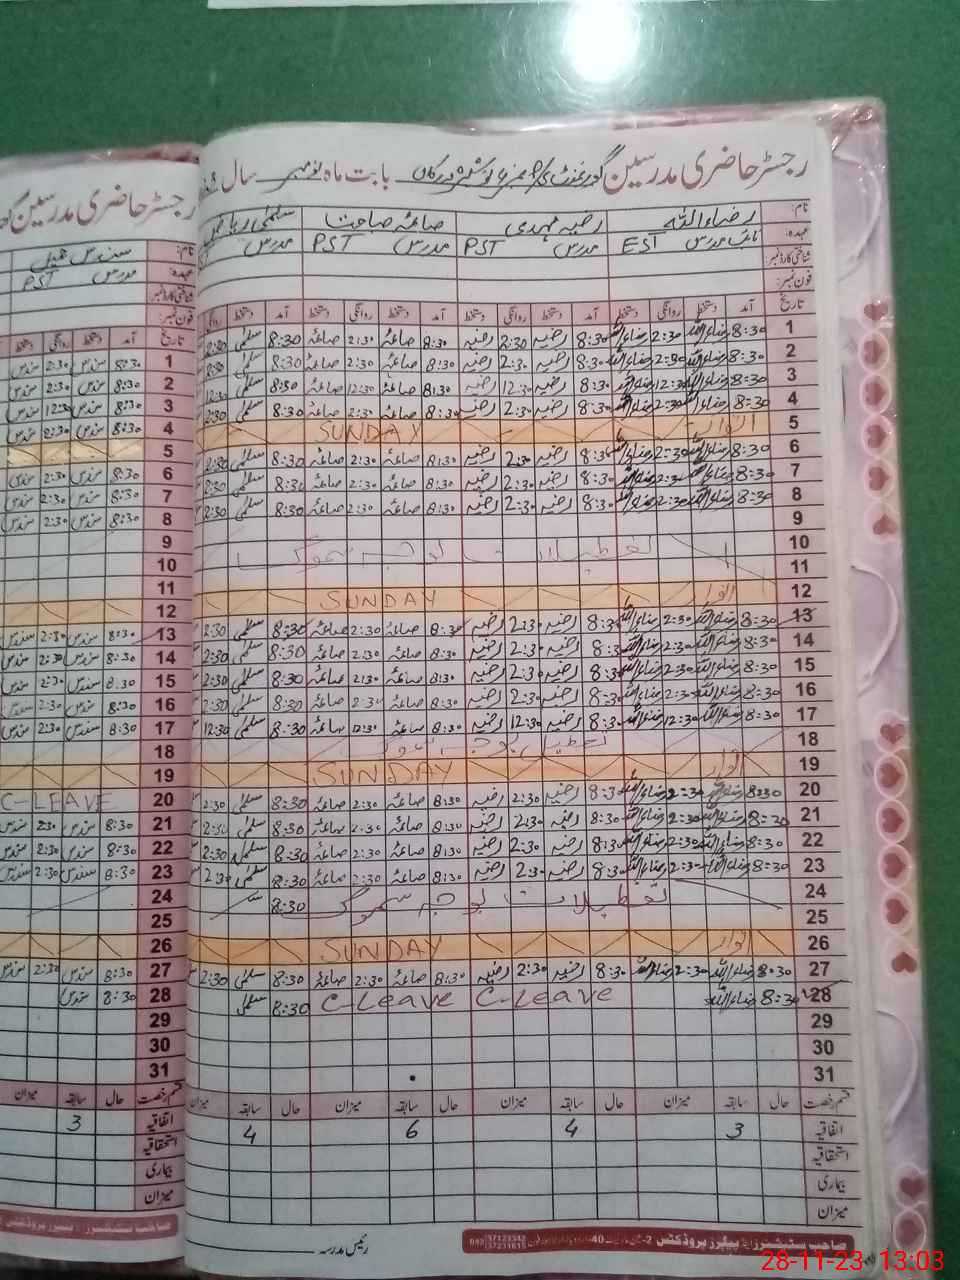 رجسٹر حاضری مدرسین گورنمنٹ بابت ماہ نومبر سال
نام: رضاء اللہ رضیہ مہدی صاعقہ سلمیٰ ریاض
عہدہ: نائب مدرس EST مدرس PST مدرس PST مدرس
شناختی کارڈ نمبر:
فون نمبر:
تاریخ آمد دستخط روانگی دستخط آمد دستخط روانگی دستخط آمد دستخط روانگی دستخط آمد دستخط روانگی
1 8:30 رضاء اللہ 2:30 رضاء اللہ 8:30 رضیہ 2:30 رضیہ 8:30 صاعقہ 2:30 صاعقہ 8:30 سلمیٰ 2:30
2 8:30 رضاء اللہ 2:30 رضاء اللہ 8:30 رضیہ 2:30 رضیہ 8:30 صاعقہ 2:30 صاعقہ 8:30 سلمیٰ
3 8:30 رضاء اللہ 12:30 رضاء اللہ 8:30 رضیہ 12:30 رضیہ 8:30 صاعقہ 12:30 صاعقہ 8:30 سلمیٰ 12:30
4 8:30 رضاء اللہ 2:30 رضاء اللہ 8:30 رضیہ 2:30 رضیہ 8:30 صاعقہ 2:30 صاعقہ 8:30 سلمیٰ 2:30
5 اتوار SUNDAY
6 8:30 رضاء اللہ 2:30 رضاء اللہ 8:30 رضیہ 2:30 رضیہ 8:30 صاعقہ 2:30 صاعقہ 8:30 سلمیٰ 2:30
7 8:30 رضاء اللہ 2:30 رضاء اللہ 8:30 رضیہ 2:30 رضیہ 8:30 صاعقہ 2:30 صاعقہ 8:30 سلمیٰ 2:30
8 8:30 رضاء اللہ 2:30 رضاء اللہ 8:30 رضیہ 2:30 رضیہ 8:30 صاعقہ 2:30 صاعقہ 8:30 سلمیٰ 2:30
9
10 تعطیلات بوجہ سموگ
11
12 اتوار SUNDAY
13 8:30 رضاء اللہ 2:30 رضاء اللہ 8:30 رضیہ 2:30 رضیہ 8:30 صاعقہ 2:30 صاعقہ 8:30 سلمیٰ 2:30
14 8:30 رضاء اللہ 2:30 رضاء اللہ 8:30 رضیہ 2:30 رضیہ 8:30 صاعقہ 2:30 صاعقہ 8:30 سلمیٰ 2:30
15 8:30 رضاء اللہ 2:30 رضاء اللہ 8:30 رضیہ 2:30 رضیہ 8:30 صاعقہ 2:30 صاعقہ 8:30 سلمیٰ 2:30
16 8:30 رضاء اللہ 2:30 رضاء اللہ 8:30 رضیہ 2:30 رضیہ 8:30 صاعقہ 2:30 صاعقہ 8:30 سلمیٰ 2:30
17 8:30 رضاء اللہ 12:30 رضاء اللہ 8:30 رضیہ 12:30 رضیہ 8:30 صاعقہ 12:30 صاعقہ 8:30 سلمیٰ 12:30
18 تعطیل بوجہ سموگ
19 اتوار SUNDAY
20 8:30 رضاء اللہ 2:30 رضاء اللہ 8:30 رضیہ 2:30 رضیہ 8:30 صاعقہ 2:30 صاعقہ 8:30 سلمیٰ 2:30
21 8:30 رضاء اللہ 2:30 رضاء اللہ 8:30 رضیہ 2:30 رضیہ 8:30 صاعقہ 2:30 صاعقہ 8:30 سلمیٰ 2:30
22 8:30 رضاء اللہ 2:30 رضاء اللہ 8:30 رضیہ 2:30 رضیہ 8:30 صاعقہ 2:30 صاعقہ 8:30 سلمیٰ 2:30
23 8:30 رضاء اللہ 2:30 رضاء اللہ 8:30 رضیہ 2:30 رضیہ 8:30 صاعقہ 2:30 صاعقہ 8:30 سلمیٰ 2:30
24 تعطیلات بوجہ سموگ 8:30
25
26 اتوار SUNDAY
27 8:30 رضاء اللہ 2:30 رضاء اللہ 8:30 رضیہ 2:30 رضیہ 8:30 صاعقہ 2:30 صاعقہ 8:30 سلمیٰ 2:30
28 8:30 رضاء اللہ C-Leave C-Leave 8:30 سلمیٰ
29
30
31
قسم رخصت حال سابقہ میزان حال سابقہ میزان حال سابقہ میزان حال سابقہ میزان
اتفاقیہ 3 4 6 4
استحقاقیہ
بیماری
میزان
صاحب سٹیشنرز اینڈ پیپرز پروڈکٹس
042 37123342 37231615
رئیس مدرسہ
رجسٹر حاضری مدرسین
نام: سندس
عہدہ: مدرس PST
شناختی کارڈ نمبر:
فون نمبر:
تاریخ آمد دستخط روانگی دستخط
1 8:30 سندس 2:30 سندس
2 8:30 سندس 2:30 سندس
3 8:30 سندس 12:30 سندس
4 8:30 سندس 2:30 سندس
5
6 8:30 سندس 2:30 سندس
7 8:30 سندس 2:30 سندس
8 8:30 سندس 2:30 سندس
9
10
11
12
13 8:30 سندس 2:30 سندس
14 8:30 سندس 2:30 سندس
15 8:30 سندس 2:30 سندس
16 8:30 سندس 2:30 سندس
17 8:30 سندس 2:30 سندس
18
19
20 C-LEAVE
21 8:30 سندس 2:30 سندس
22 8:30 سندس 2:30 سندس
23 8:30 سندس 2:30 سندس
24
25
26
27 8:30 سندس 2:30 سندس
28 8:30 سندس
29
30
31
قسم رخصت حال سابقہ میزان
اتفاقیہ 3
استحقاقیہ
بیماری
میزان
صاحب سٹیشنرز اینڈ پیپرز پروڈکٹس
28-11-23 13:03